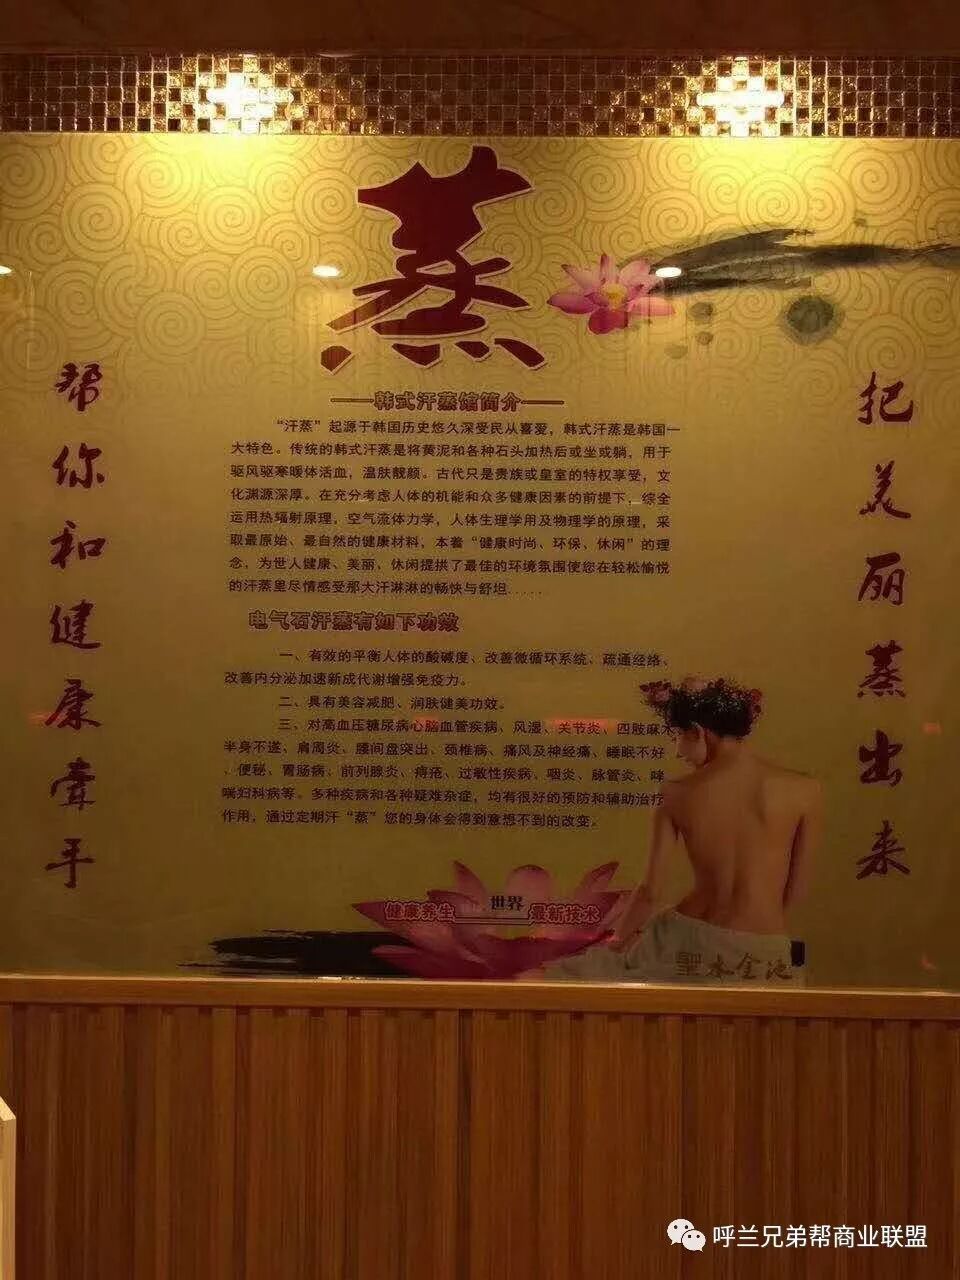 蒸
——韩式汗蒸馆简介——
“汗蒸”起源于韩国历史悠久深受民从喜爱，韩式汗蒸是韩国一
大特色。传统的韩式汗蒸是将黄泥和各种石头加热后或坐或躺，用于
驱风驱寒暖体活血，温肤靓颜。古代只是贵族或皇室的特权享受，文
化渊源深厚。在充分考虑人体的机能和众多健康因素的前提下，综全
运用热辐射原理，空气流体力学，人体生理学用及物理学的原理，采
取最原始、最自然的健康材料，本着“健康时尚、环保、休闲”的理
念，为世人健康、美丽、休闲提拱了最佳的环境氛围使您在轻松愉悦
的汗蒸里尽情感受那大汗淋淋的畅快与舒坦.....
电气石汗蒸有如下功效
一、有效的平衡人体的酸碱度、改善微循环系统、疏通经络、
改善内分泌加速新成代谢增强免疫力。
二、具有美容减肥、润肤健美功效。
三、对高血压糖尿病心脑血管疾病、风湿、关节炎、四肢麻木
半身不遂、肩周炎、腰间盘突出、颈椎病、痛风及神经痛、睡眠不好
、便秘、胃肠病、前列腺炎、痔疮、过敏性疾病、咽炎、脉管炎、哮
喘妇科病等。多种疾病和各种疑难杂症，均有很好的预防和辅助治疗
作用，通过定期汗“蒸”您的身体会得到意想不到的改变。
帮你和健康牵手
把美丽蒸出来
健康养生 世界 最新技术
聖水金池
呼兰兄弟帮商业联盟